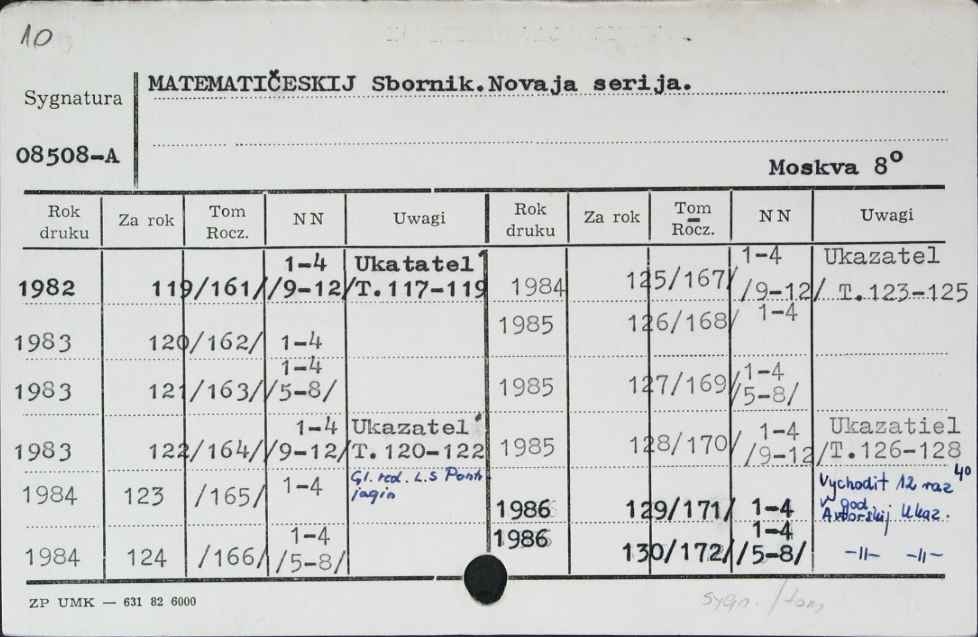 10
Sygnatura
MATEMATIČESKIJ Sbornik.Novaja serija.
08508-A
Moskva 8°
Rok druku Za rok Tom Rocz. NN Uwagi Rok druku Za rok Tom Rocz. NN Uwagi
1-4 Ukatatel'
1982 119/161/ /9-12/ T.117-119
1983 120/162/ 1-4
1-4
1983 121/163/ /5-8/
1-4 Ukazatel'
1983 122/164/ /9-12/ T.120-122
1984 123 /165/ 1-4 Gl. red. L.S Pontr-
jagin
1-4
1984 124 /166/ /5-8/
1-4 Ukazatel
1984 125/167/ /9-12/ T.123-125
1985 126/168/ 1-4
1-4
1985 127/169/ /5-8/
1-4 Ukazatiel
1985 128/170/ /9-12/ T.126-128
Vychodit 12 raz
v god 40
1986 129/171/ 1-4 Avtorskij Ukaz.
1-4
1986 130/172/ /5-8/ -II- -II-
ZP UMK — 631 82 6000
sygn. /tom